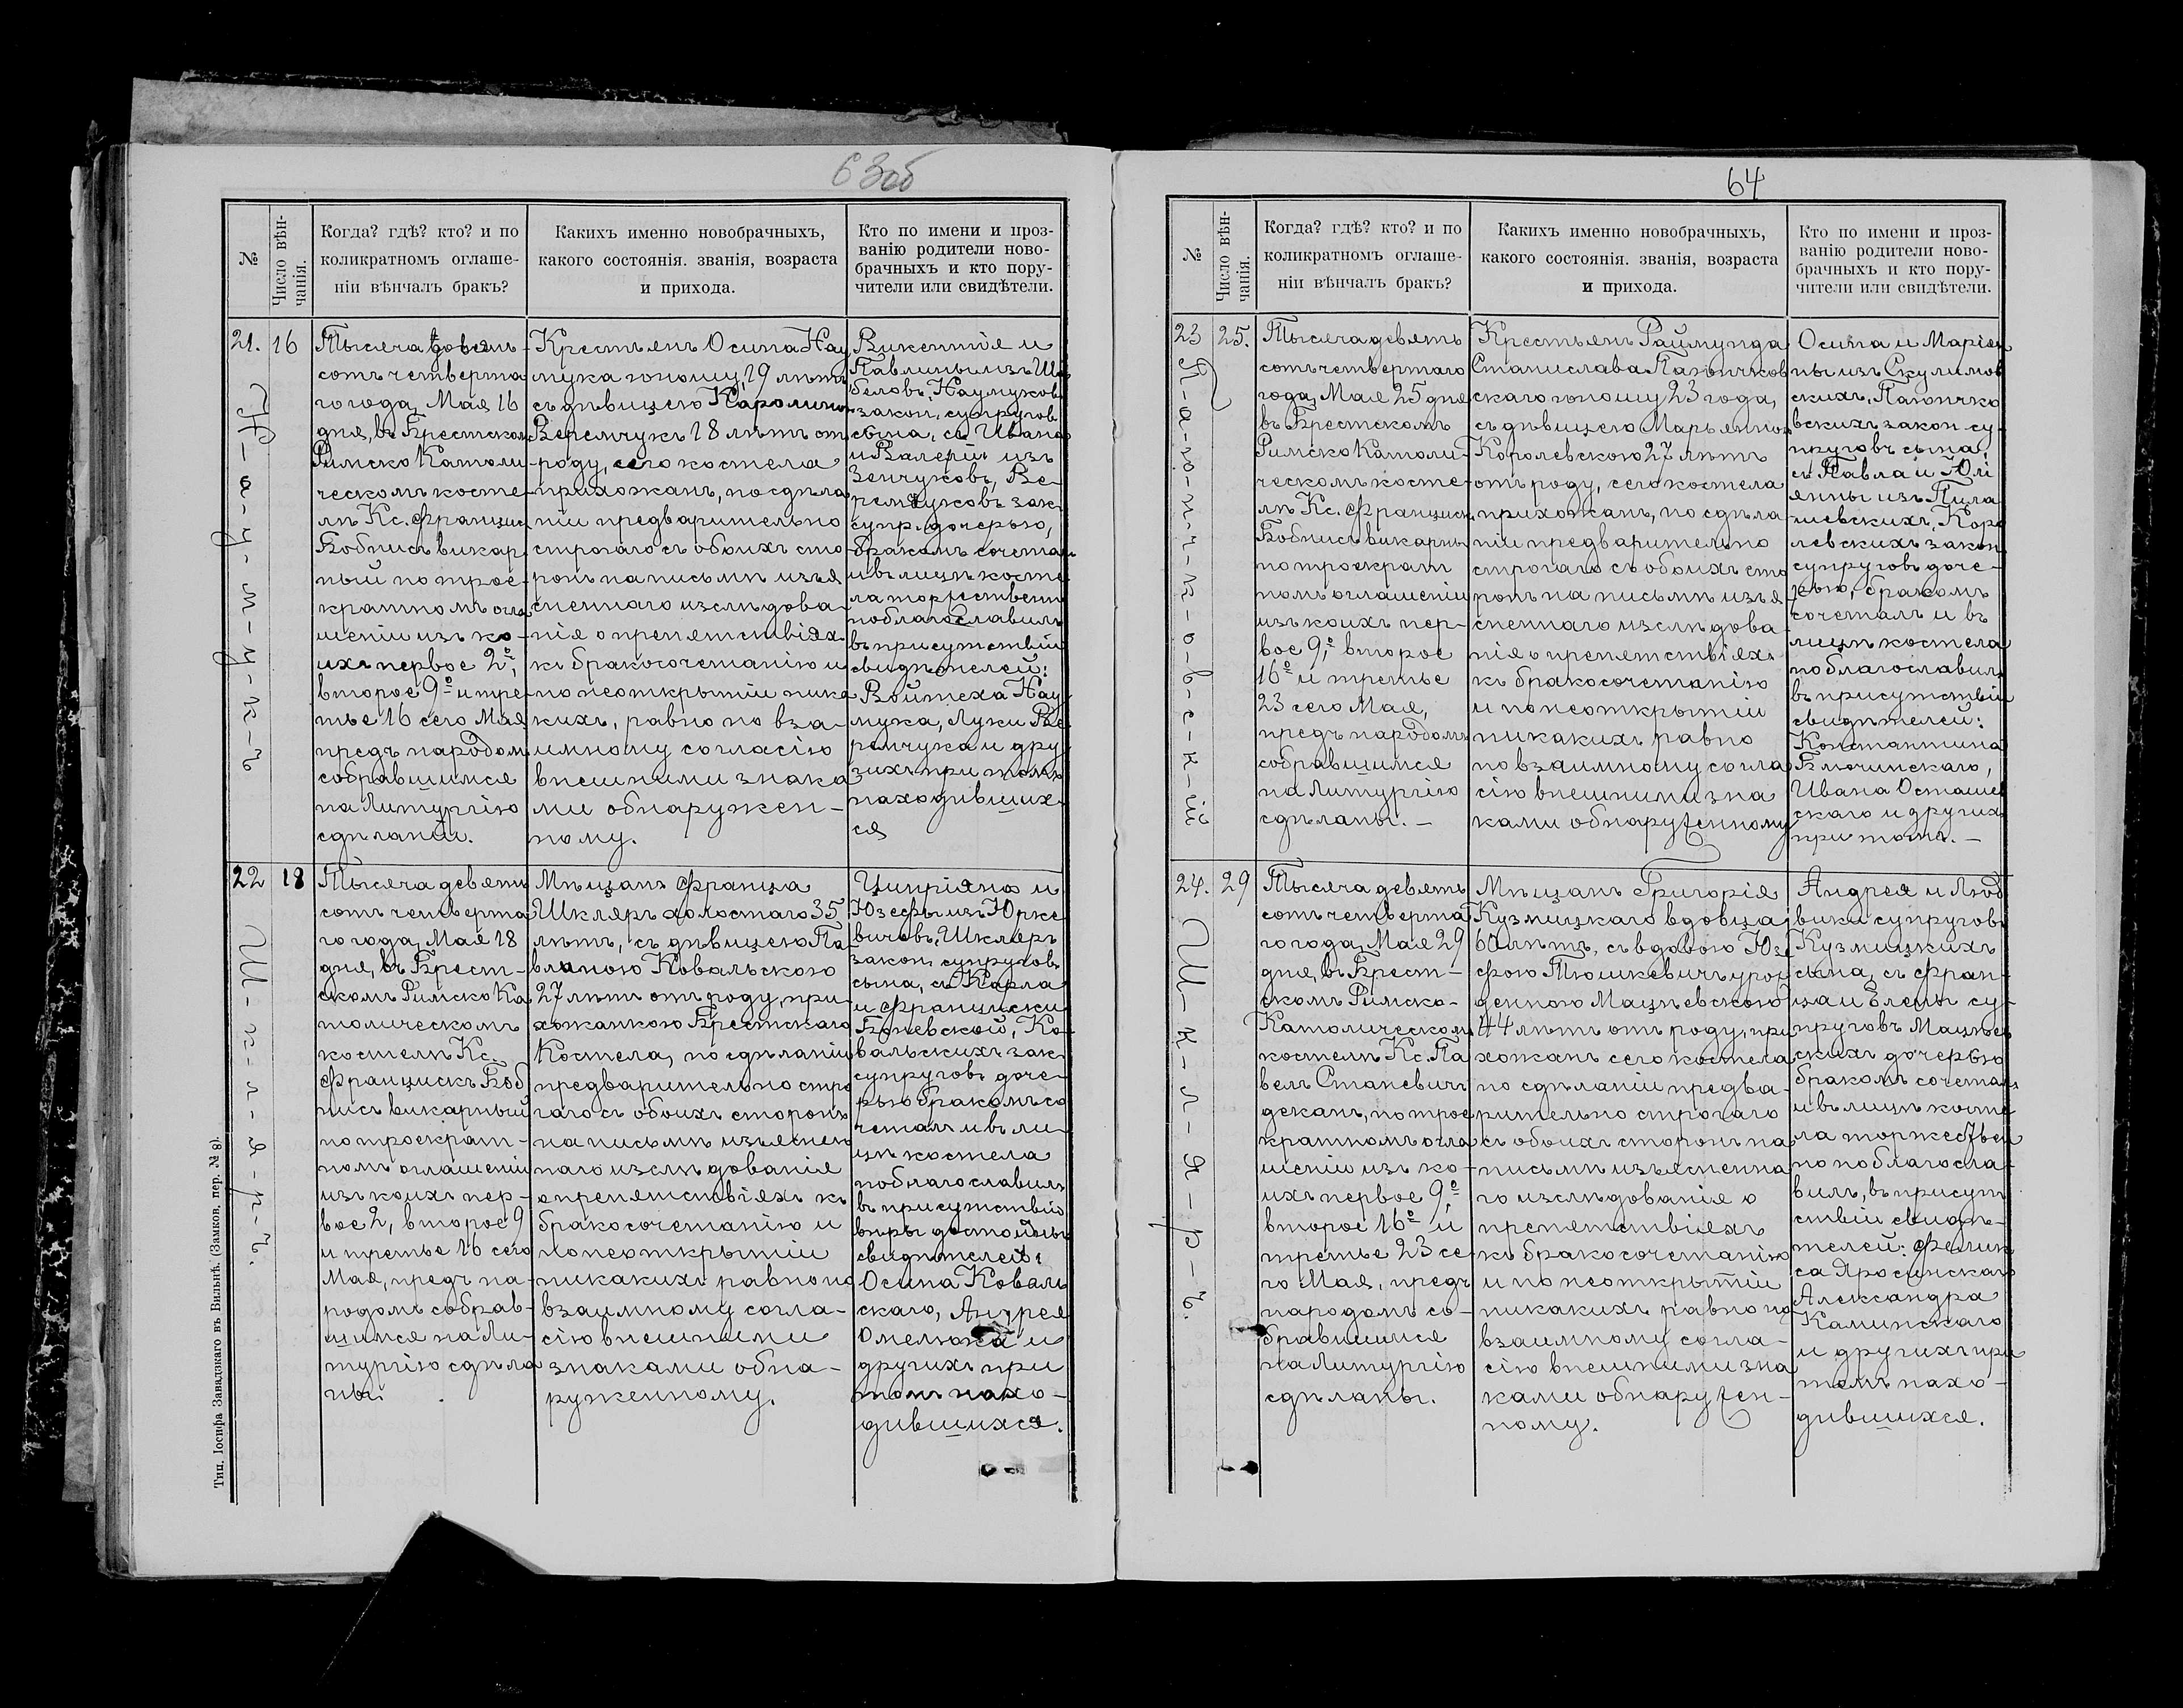 63об
№
Число вѣн-
чанія.
Когда? гдѣ? кто? и по
коликратномъ оглаше-
ніи вѣнчалъ бракъ?
Какихъ именно новобрачныхъ,
какого состоянія. званія, возраста
и прихода.
Кто по имени и проз-
ванію родители ново-
брачныхъ и кто пору-
чители или свидѣтели.
21.
16
Н-а-у-м-у-к-ъ
Тысяча девять
сотъ четверта
го года, Мая 16
дня, въ Брестском
Римско Католи
ческомъ косте-
лѣ Кс. Францис
Бобнисъ викар
ный по трое-
кратномъ огла
шеніи изъ ко-
ихъ первое 2º,
второе 9º и тре-
тье 16 сего Мая
предъ народом
собравшимся
на Литургію
сдѣланіи.
Крестьянъ Осипа Нау
мука юношу, 19 лѣтъ
съ дѣвицею Каролиною
Веремчукъ 18 лѣтъ от
роду, сего костела
прихожанъ, по сдѣла
ніи предварительно
строгаго съ обоихъ сто
ронъ на письмѣ изъя
сненнаго изслѣдова-
нія о препятствіяхъ
къ бракосочетанію и
по неоткрытіи ника
кихъ, равно по вза-
имному согласію
внешними знака
ми обнаружен-
ному.
Викентія и
Павлины изъ
беловъ, Наумуковъ
закон. супругов
сына, съ Ивана
и Валеріи изъ
Зенчуковъ, Ве-
ремчуковъ зак.
супр. дочерью,
бракомъ сочетал
и въ лицѣ косте
ла торжественн
поблагославилъ
въ присутствіи
свидѣтелей:
Войтеха Нау
мука, Луки Ве
ремчука и дру
гихъ при томъ
находивших
ся
22
18
Ш-к-л-я-р-ъ.
Тысяча девять
сотъ четверта
го года, Мая 18
дня, въ Брест-
скомъ Римско Ка
толическомъ
костелѣ Кс.
Францискъ Боб
нисъ викарный
по троекрат-
номъ оглашеніи
изъ коихъ пер-
вое 2, второе 9
и третье 16 сего
Мая, предъ на-
родомъ собрав-
шимся на Ли-
тургію сдѣла
ны.
Мѣщанъ Франца
Шкляръ холостаго 35
лѣтъ, съ дѣвицею Па
влиною Ковальскою
27 лѣтъ отъ роду, при-
хожанкою Брестскаго
Костела, по сдѣланіи
предварительно стро
гаго съ обоихъ сторонъ
на письмѣ изъяснен
наго изслѣдованія
о препятствіяхъ къ
бракосочетанію и
по неоткрытіи
никакихъ равно по
взаимному согла-
сію внешними
знаками обна-
руженному.
Ципріяна и
Юзефы изъ Юрке
вичовъ, Шкляръ
закон. супругов
сына, съ Карла
и Франциски
Боневской, Ко-
вальскихъ зак.
супруговъ доче-
рью бракомъ со
четалъ и въ ли-
цѣ костела
поблагославилъ
въ присутствіи
вѣры достойныхъ
свидѣтелей:
Осипа Коваль
скаго, Андрея
Омелюка и
другихъ при
томъ нахо-
дившихся.
Тип. Іосифа Завадзкаго въ Вильнѣ. (Замков. пер. № 8).
64
№
Число вѣн-
чанія.
Когда? гдѣ? кто? и по
коликратномъ оглаше-
ніи вѣнчалъ бракъ?
Какихъ именно новобрачныхъ,
какого состоянія. званія, возраста
и прихода.
Кто по имени и проз-
ванію родители ново-
брачныхъ и кто пору-
чители или свидѣтели.
23
25.
П-а-ю-н-ч-к-о-в-с-к-ій
Тысяча девять
сотъ четвертаго
года, Мая 25 дня
въ Брестскомъ
Римско Католи-
ческомъ косте-
лѣ Кс. Францискъ
Бобнисъ викарны
по троекрат
номъ оглашеніи
изъ коихъ пер-
вое 9º, второе
16º и третье
23 сего Мая,
предъ народомъ
собравшимся
на Литургію
сдѣланы.-
Крестьянъ Раймунда
Станислава Паюнчков
скаго юношу 23 года,
съ дѣвицею Марьянною
Королевскою 27 лѣтъ
отъ роду, сего костела
прихожанъ, по сдѣла
ніи предварительно
строгаго съ обоихъ сто
ронъ на письмѣ изъя
сненнаго изслѣдова-
нія о препятствіяхъ
къ бракосочетанію
и по неоткрытіи
никакихъ равно
по взаимному согла
сію внешними зна
ками обнаруженному
Осипа и Маріан
ны изъ Скулимов
скихъ, Паюнчко
вскихъ закон. су-
пруговъ сына,
съ Павла и Юлі
янны изъ Пила
шевскихъ, Коро
левскихъ закон
супруговъ доче-
рью, бракомъ
сочеталъ и въ
лицѣ костела
поблагославилъ
въ присутствіи
свидѣтелей:
Константина
Ивана Осташев
скаго и другихъ
при томъ.-
24.
29
Ш-к-л-я-р-ъ.
Тысяча девять
сотъ четверта
го года, Мая 29
дня, въ Брест-
скомъ Римско-
Католическом
костелѣ Кс. Па
велъ Станевичъ
деканъ, по трое
кратномъ огла
шеніи изъ ко-
ихъ первое 9º,
второе 16º и
третье 23 се-
го Мая, предъ
народомъ со-
бравшимся
на Литургію
сдѣланы.
Мѣщанъ Григорія
Кузмицкаго вдовца
60 лѣтъ, съ вдовою Юзе
фою Тюшкевичъ урож
денною Мацѣевскою
44 лѣтъ отъ роду, при
хожанъ сего костела
по сдѣланіи предва-
рительно строгаго
съ обоихъ сторонъ на
письмѣ изъясненна
го изслѣдованія о
препятствіяхъ
къ бракосочетанію
и по неоткрытіи
никакихъ равно по
взаимному согла-
сію внешними зна
ками обнаружен-
ному.
Андрея и Люд
вики супруговъ
Кузмицкихъ
сына, съ Фран-
ца и Елены су-
пруговъ Мацѣев
скихъ дочерью
бракомъ сочеталъ
и въ лицѣ косте
ла торжествен
но поблагосла-
вилъ, въ присут
ствіи свидѣ-
телей: Феликса
са Яросинскаго
Александра
Каминскаго
и другихъ при
томъ нахо-
дившихся.